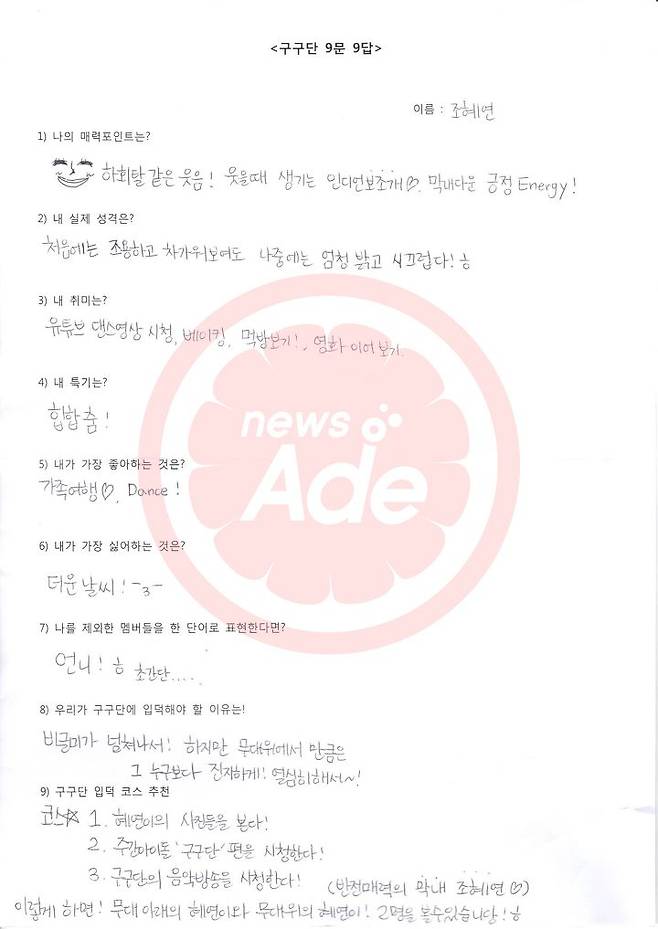 <구구단 9문 9답>
이름 : 조혜연
1) 나의 매력포인트는?
하회탈 같은 웃음! 웃을때 생기는 인디언보조개♡. 막내다운 긍정 Energy!
2) 내 실제 성격은?
처음에는 조용하고 차가워보여도 나중에는 엄청 밝고 시끄럽다!ㅎ
3) 내 취미는?
유튜브 댄스영상 시청, 베이킹, 먹방보기!, 영화 이어보기.
4) 내 특기는?
힙합 춤!
news
Ade
5) 내가 가장 좋아하는 것은?
가족여행♡, Dance!
6) 내가 가장 싫어하는 것은?
더운 날씨! -3-
7) 나를 제외한 멤버들을 한 단어로 표현한다면?
언니! ㅎ 초간단....
8) 우리가 구구단에 입덕해야 할 이유는!
비글미가 넘쳐나서! 하지만 무대위에서 만큼은
그 누구보다 진지하게! 열심히해서~!
9) 구구단 입덕 코스 추천
코스☆ 1. 혜연이의 사진들을 본다!
2. 주간아이돌 '구구단' 편을 시청한다!
3. 구구단의 음악방송을 시청한다! (반전매력의 막내 조혜연♡)
이렇게 하면! 무대 아래의 혜연이와 무대위의 혜연이! 2명을 볼수있습니당!ㅎ